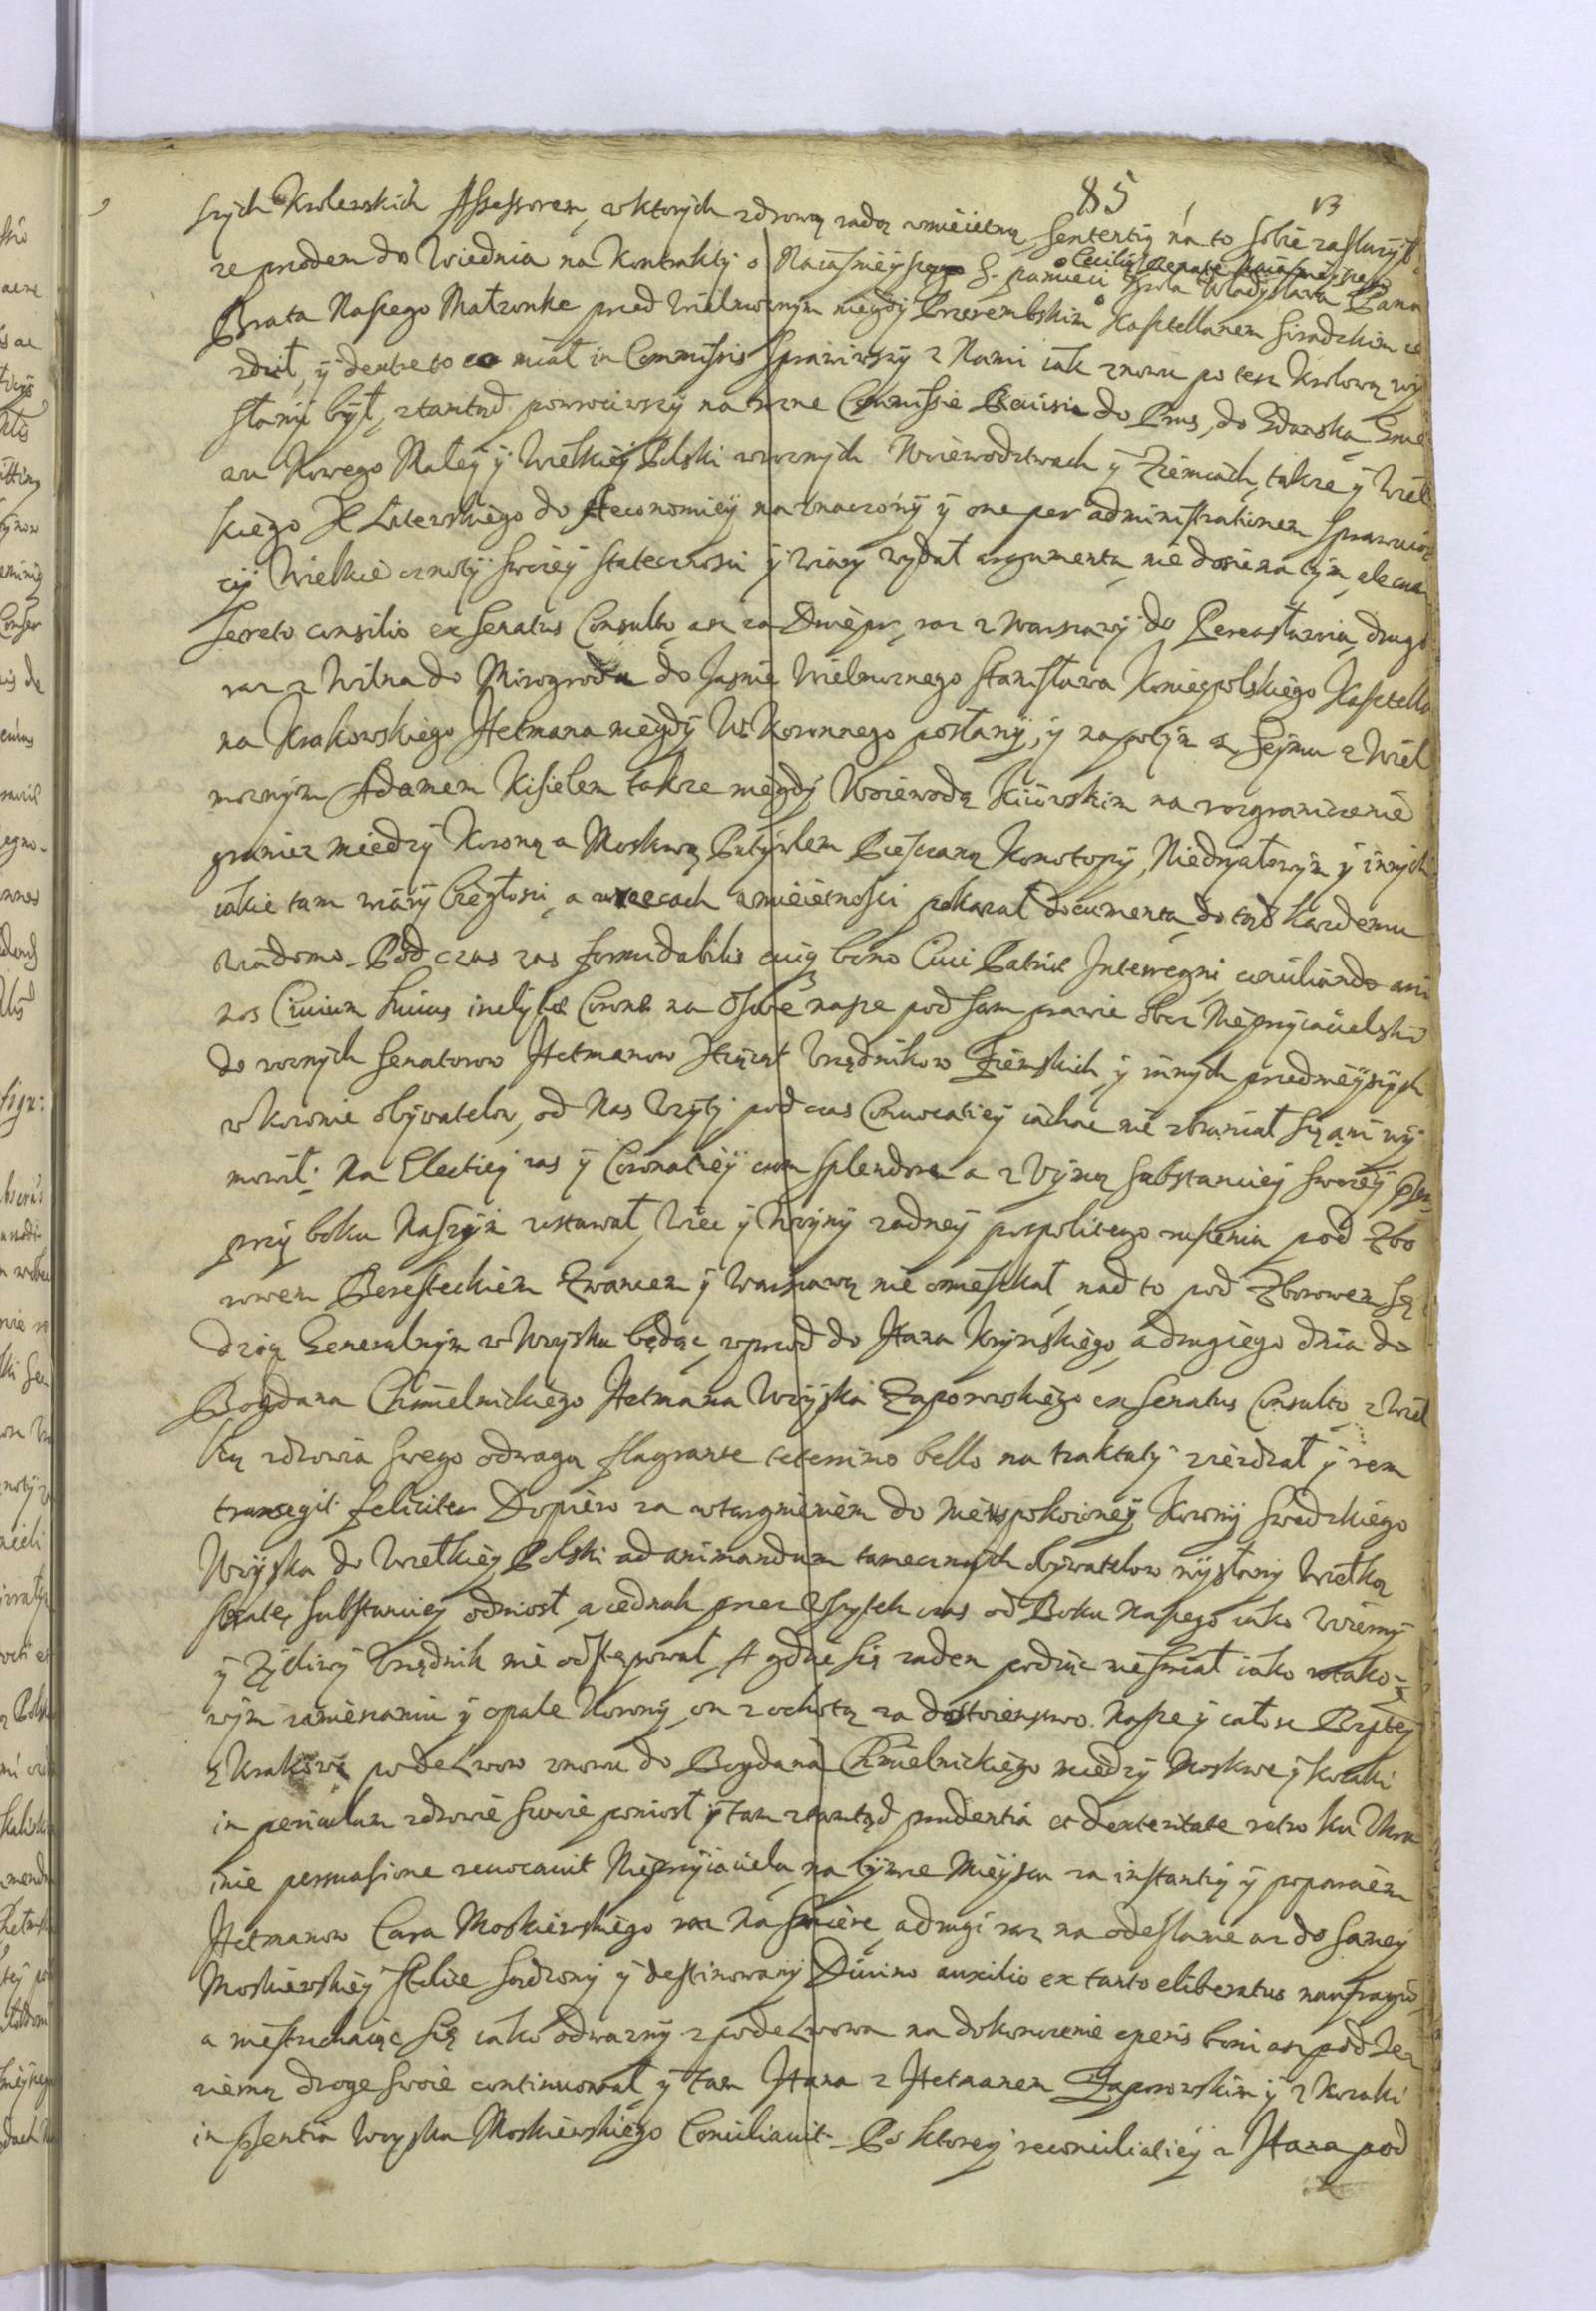 85
szych Krolewskich Assessorem, w ktorych zdrową radą umieiętną sententią na to sobie zasłużył
ze przodem do Wiednia na Kontrakty o Naiasnieyszego S. pamięci Krola Władysława Pana
Cecilią Renatę Naiasnieyszego
Brata Naszego Małzonke przed Wielmoznym niegdy Przerembskim Kasztellanem Siradzkim ie
zdził, y dextre to co miał in Commissis sprawiwszy z Nami iak znowu po tesz Krolową wy
słany był, ztamtąd powrociwszy na rozne Commissie Rewisie do Prus, do Gdanska, Gnie
wu Nowego Małey y Wielkiey Polski w roznych Woiewodztwach y Ziemiach, takze y Wiel
kiego X Litewskiego do Aeconomiey naznaczony y one per administrationem sprawuią
cy Wielkie cnoty swoiey stateczności y wiary wydał argumenta, nie dosic na tym, ale cum
secreto consilio ex Senatus Consulto, asz za Dniepr, raz z Warszawy do Pereasławia, drugi
raz z Wilna do Mirogrodu do Jasnie Wielmoznego Stanisława Koniecpolskiego Kasztella
na Krakowskiego Hetmana niegdy W. Koronnego posłany, y napotym z Seymu z Wiel
moznym Adamem Kisielem takze niegdy Woiewodą Kiiowskim na rozgraniczenie
granicz miedzy Koroną a Moskwą Putywlem Pieszczaną Konotopy, Niedryałowym y innych
iakie tam wiary biegłosci, a w rzecach umieiętnosci pokazał documenta, do tąd kazdemu
wiadomo. Pod czas zas formidabilis cuiq bono Civi Patriae Interregni conciliando ani
mos Civium huius inclytae Coronae na Osobe nasze pod sam prawie oboz Nieprzyiacielski
do roznych Senatorow Hetmanow Xiąząt Urzędnikow Ziemskich y innych przednieyszych
w Koronie obywatelow, od Nas Uzyty pod czas Convocatiey iachac nie zbraniał się ani wy
mowił. Na Electiey zas y Coronatiey cum splendore a z Uymą substanciey swoiey psen.
przy boku Naszym zostawał, Wiec y Woyny zadney pospolitego ruszenia pod Zbo
rowem Beresteckiem Zwancem y Warszawą nie omieszkał, nad to pod Zborowem Sę
dzią Generalnym w Woysku będąc, wprzod do Hana Krymskiego, a drugiego dnia do
Bogdana Chmielnickiego Hetmana Woyska Zaporowskiego ex Senatus Consulto, z Wiel
ką zdrowia swego odwagą flagrante teterrimo bello na traktaty ziezdzał y rem
transegit feliciter. Dopiero za wtargnieniem do nieuspokoioney Korony Swedzkiego
Woyska do Wielkiey Polski ad animandum tamecznych obywatelow wysłany Wielką
strate, substanciey odniosł, a iednak przez Wszytek czas od Boku Naszego iako Wierny
y Zyczliwy Urzędnik nie odstępował, A gdzie się zaden podiąc niesmiał iako w tako
wym zamieszaniu y opale Korony, on z ochotą za dostoienstwo Nasze y całosc Rzptey
z Krakowa pode Lwow znowu do Bogdana Chmielnickiego miedzy Moskwe y Kozaki
in periculum zdrowie swoie poniosł y tam ztamtąd prudentia et dexteritate retro ku Ukra
inie persuasione revocavit Nieprzyiaciela, na tymze Mieyscu za instantią y poparciem
Hetmanow Cara Moskiewskiego raz na smierc, a drugi raz na odesłanie asz do samey
Moskiewskiey Stolice sądzony y destinowany Divino auxilio ex tanto eliberatus naufragio,
a niestrachaiąc się iako odwazny z pode Lwowa na dokonczenie operis boni asz pod Ie
zierną droge swoie continuował y tam Hana z Hetmanem Zaporowskim y z Kozaki
in psentia Woyska Moskiewskiego Conciliavit. Po ktorey reconciliatiey z Hana pod